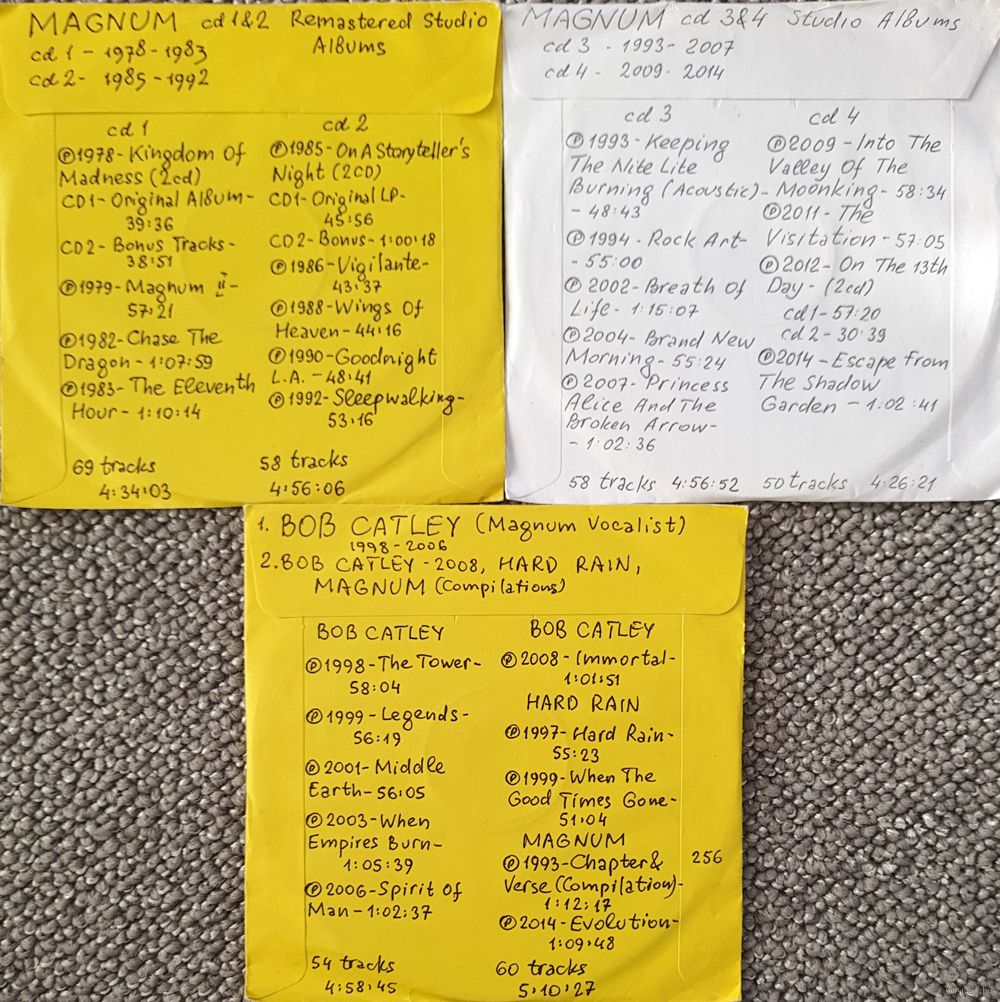 MAGNUM cd 1&2 Remastered Studio Albums
cd 1 - 1978 - 1983
cd 2 - 1985 - 1992
cd 1
Ⓟ1978 - Kingdom Of
Madness (2cd)
CD1 - Original Album -
39:36
CD2 - Bonus Tracks -
38:51
Ⓟ1979 - Magnum II -
57:21
Ⓟ1982 - Chase The
Dragon - 1:07:59
Ⓟ1983 - The Eleventh
Hour - 1:10:14
69 tracks
4:34:03
cd 2
Ⓟ1985 - On A Storyteller's
Night (2CD)
CD1 - Original LP -
45:56
CD2 - Bonus - 1:00:18
Ⓟ1986 - Vigilante -
43:37
Ⓟ1988 - Wings Of
Heaven - 44:16
Ⓟ1990 - Goodnight
L.A. - 48:41
Ⓟ1992 - Sleepwalking -
53:16
58 tracks
4:56:06
MAGNUM cd 3&4 Studio Albums
cd 3 - 1993 - 2007
cd 4 - 2009 - 2014
cd 3
Ⓟ1993 - Keeping
The Nite Lite
Burning (Acoustic) -
- 48:43
Ⓟ1994 - Rock Art -
- 55:00
Ⓟ2002 - Breath Of
Life - 1:15:07
Ⓟ2004 - Brand New
Morning - 55:24
Ⓟ2007 - Princess
Alice And The
Broken Arrow -
- 1:02:36
58 tracks 4:56:52
cd 4
Ⓟ2009 - Into The
Valley Of The
Moonking - 58:34
Ⓟ2011 - The
Visitation - 57:05
Ⓟ2012 - On The 13th
Day - (2cd)
cd 1 - 57:20
cd 2 - 30:39
Ⓟ2014 - Escape From
The Shadow
Garden - 1:02:41
50 tracks 4:26:21
1. BOB CATLEY (Magnum Vocalist)
1998 - 2006
2. BOB CATLEY - 2008, HARD RAIN,
MAGNUM (Compilations)
BOB CATLEY
Ⓟ1998 - The Tower -
58:04
Ⓟ1999 - Legends -
56:19
Ⓟ2001 - Middle
Earth - 56:05
Ⓟ2003 - When
Empires Burn -
1:05:39
Ⓟ2006 - Spirit Of
Man - 1:02:37
54 tracks
4:58:45
BOB CATLEY
Ⓟ2008 - Immortal -
1:01:51
HARD RAIN
Ⓟ1997 - Hard Rain -
55:23
Ⓟ1999 - When The
Good Times Gone -
51:04
MAGNUM
Ⓟ1993 - Chapter &
Verse (Compilation) -
1:12:17
Ⓟ2014 - Evolution -
1:09:48
60 tracks
5:10:27
256